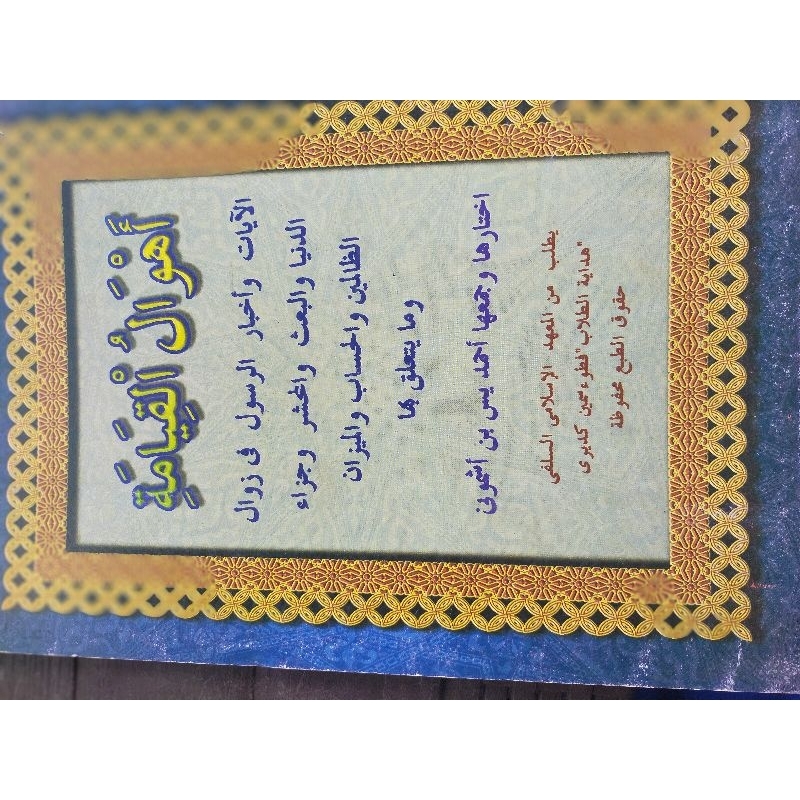 أَهْوَالُ الْقِيَامَةِ
الآيات وأخبار الرسول فى زوال
الدنيا والبعث والحشر وجزاء
الظالمين والحساب والميزان
وما يتعلق بها
اختارها وجمعها أحمد يس بن أشمونى
يطلب من المعهد الإسلامى السلفى
"هداية الطلاب" فطوءسحين كديرى
حقوق الطبع محفوظة